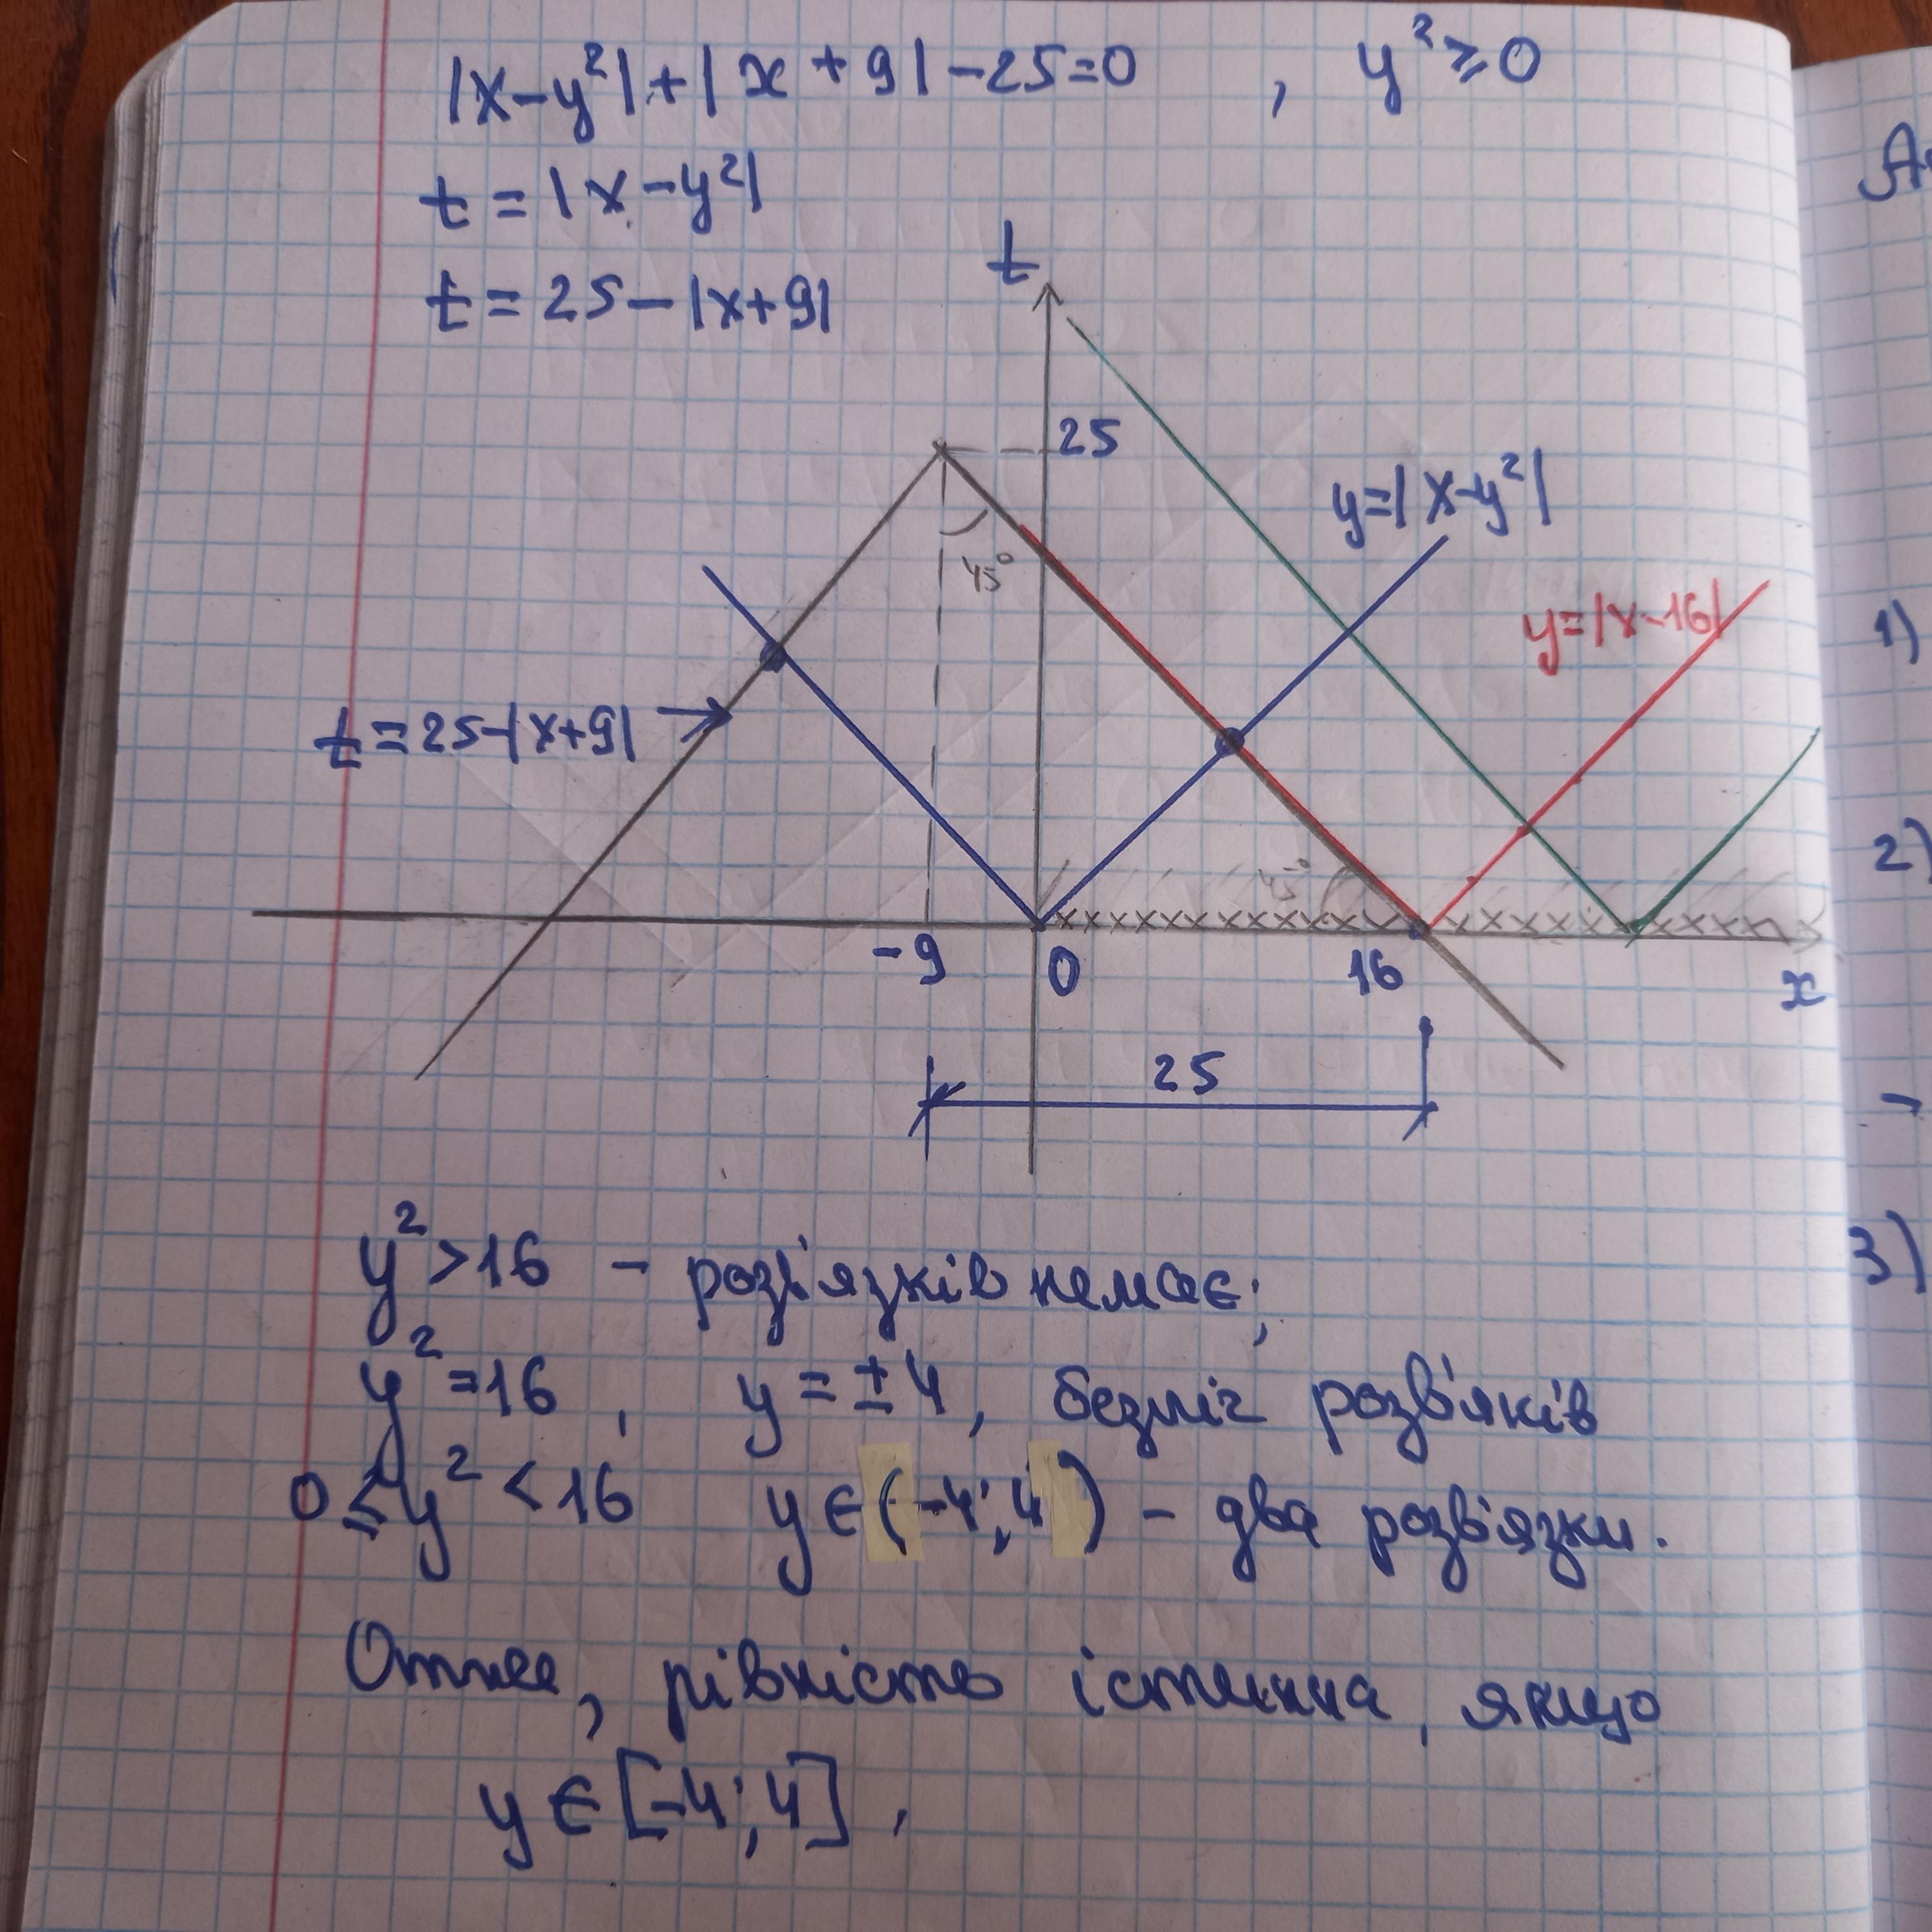 |x-y²|+|x+9|-25=0 , y²≥0
t=|x-y²|
t=25-|x+9|
t
25
y=|x-y²|
45°
y=|x-16|
t=25-|x+9|
45°
-9
0
16
x
25
y²>16 - розв'язків немає;
y²=16, y=±4, безліч розв'яків
0≤y²<16 y∈(-4;4) - два розв'язки.
Отже, рівність істинна, якщо
y∈[-4;4],
1)
2)
3)